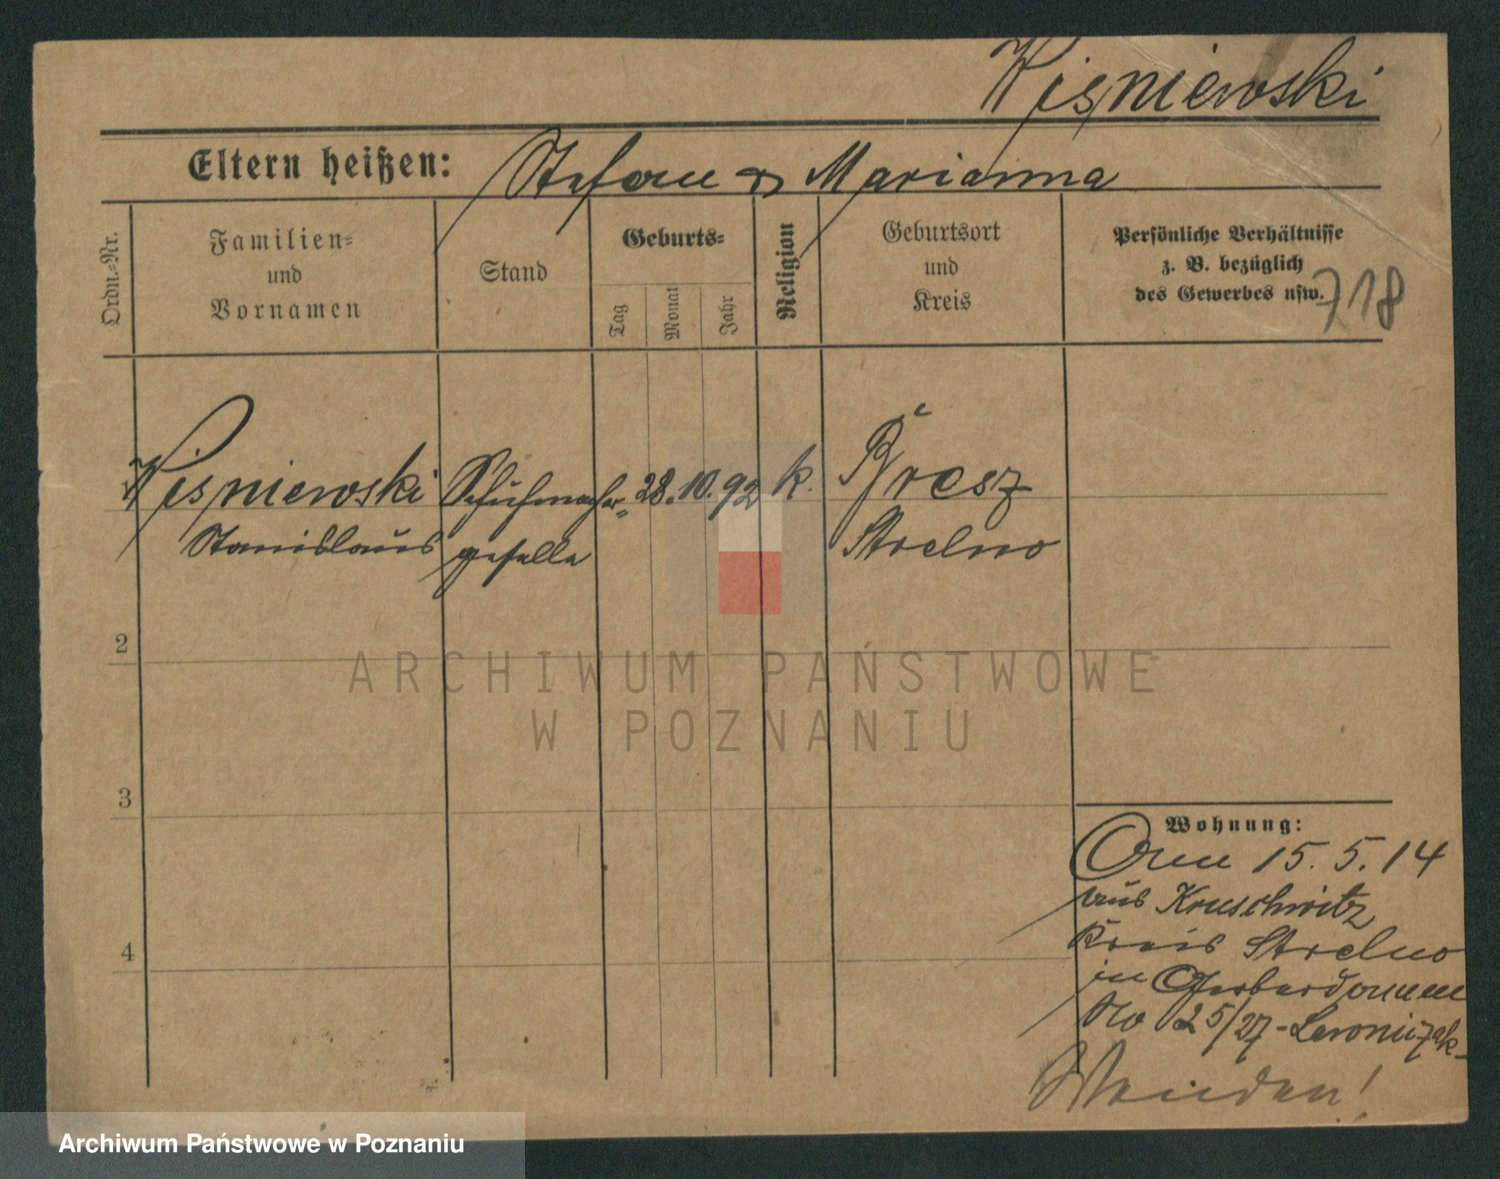 Wiśniewski
Eltern heißen: Stefan & Marianna
Ordn.-Nr.
Familien-
und
Vornamen
Stand
Geburts-
Tag
Monat
Jahr
Religion
Geburtsort
und
Kreis
Persönliche Verhältnisse
z. B. bezüglich
des Gewerbes usw.
718
Wiśniewski Schuhmacher- 28. 10. 92 k.
Stanislaus geselle Strelno
2
3
4
Wohnung:
15. 5. 14
aus Kruschwitz
Kreis Strelno
in Gerberdamm
No 25/27-
Wenden!
ARCHIWUM PAŃSTWOWE
W POZNANIU
Archiwum Państwowe w Poznaniu